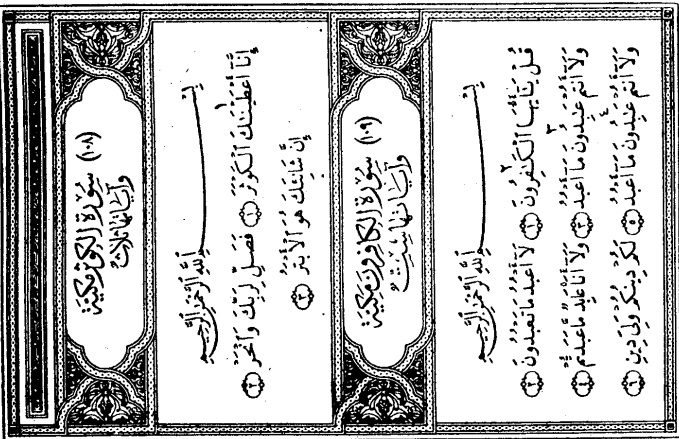 (١٠٨) سُورَةُ الكَوثَرِ مَكِّيَّة
وَآيَاتُهَا ثَلاثٌ
بِسْمِ ٱللَّهِ ٱلرَّحْمَٰنِ ٱلرَّحِيمِ
إِنَّآ أَعْطَيْنَٰكَ ٱلْكَوْثَرَ ١ فَصَلِّ لِرَبِّكَ وَٱنْحَرْ ٢
إِنَّ شَانِئَكَ هُوَ ٱلْأَبْتَرُ ٣
(١٠٩) سُورَةُ الكَافِرُونَ مَكِّيَّة
وَآيَاتُهَا سِتٌّ
بِسْمِ ٱللَّهِ ٱلرَّحْمَٰنِ ٱلرَّحِيمِ
قُلْ يَٰٓأَيُّهَا ٱلْكَٰفِرُونَ ١ لَآ أَعْبُدُ مَا تَعْبُدُونَ ٢
وَلَآ أَنتُمْ عَٰبِدُونَ مَآ أَعْبُدُ ٣ وَلَآ أَنَا۠ عَابِدٌ مَّا عَبَدتُّمْ ٤
وَلَآ أَنتُمْ عَٰبِدُونَ مَآ أَعْبُدُ ٥ لَكُمْ دِينُكُمْ وَلِىَ دِينِ ٦